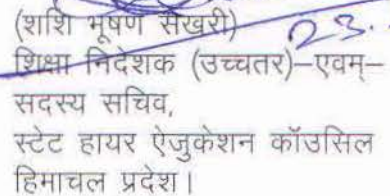 (शशि भूषण सेखरी) 23.
शिक्षा निदेशक (उच्चतर)–एवम्–
सदस्य सचिव,
स्टेट हायर ऐजुकेशन कॉउसिल
हिमाचल प्रदेश।